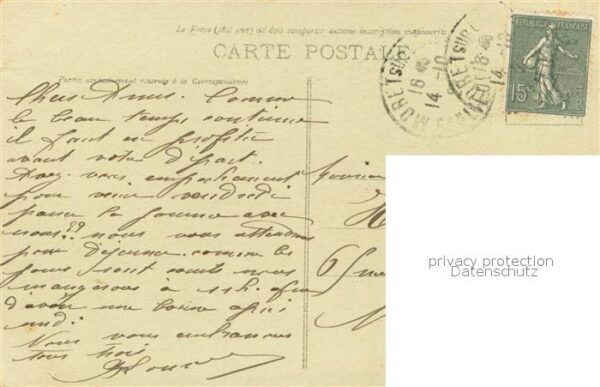 Le Verso (côté vue) ne doit comporter aucune inscription manuscrite
CARTE POSTALE
Partie exclusivement réservée à la Correspondance
REPUBLIQUE FRANÇAISE
15c
MORET SUR
18
14 -10
Chers Amis. Comme
le beau temps continue
il faut en profiter
avant votre départ.
vous
pour venir vendredi
passer la journée avec
nous?? nous vous attendons
pour déjeuner comme les
jours sont courts nous
mangerons à 11h. afin
d'avoir une bonne après
midi.
Nous vous embrassons
tous trois
6
privacy protection
Datenschutz